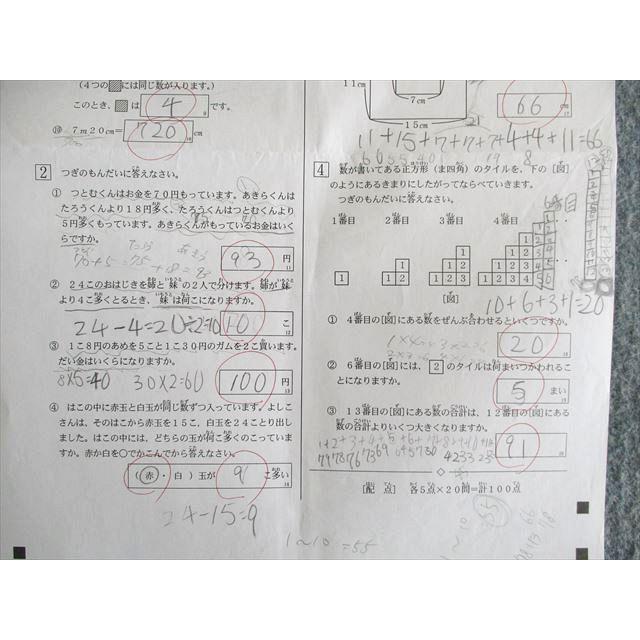 (4つの■には同じ数が入ります。)
このとき、■は 4 です。
⑩ 7m20cm= 720 cm
2 つぎのもんだいに答えなさい。
① つとむくんはお金を70円もっています。あきらくんは
たろうくんより18円多く、たろうくんはつとむくんより
5円多くもっています。あきらくんがもっているお金はいく
らですか。
70+5=75
93 円
② 24このおはじきを姉と妹の2人で分けます。姉が妹
より4こ多くとるとき、妹は何こになりますか。
24-4=20÷2=10
10 こ
③ 1こ8円のあめを5こと1こ30円のガムを2こ買います。
だい金はいくらになりますか。
8×5=40 30×2=60
100 円
④ はこの中に赤玉と白玉が同じ数ずつ入っています。よしこ
さんは、そのはこから赤玉を15こ、白玉を24ことり出し
ました。はこの中には、どちらの玉が何こ多くのこってい
ますか。赤か白を○でかこんでから答えなさい。
(赤・白)玉が 9 こ多い
24-15=9
1～10=55
11cm
7cm
15cm
66 cm
11+15+7+7+7+4+4+11=66
4 数が書いてある正方形(ま四角)のタイルを、下の[図]
のようにあるきまりにしたがってならべていきます。
つぎのもんだいに答えなさい。
1番目 2番目 3番目 4番目
6番目
[図]
10+6+3+1=20
① 4番目の[図]にある数をぜんぶ合わせるといくつですか。
20
② 6番目の[図]には、2のタイルは何まいつかわれるこ
とになりますか。
5 まい
③ 13番目の[図]にある数の合計は、12番目の[図]にある
数の合計よりいくつ大きくなりますか。
91
[配 点] 各5点×20問=計100点
55
1～10